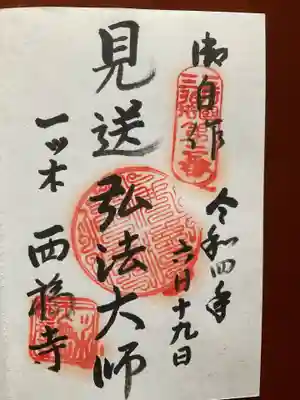 御自作
令和四年
六月十九日
見送弘法大師
一ツ木
西福寺